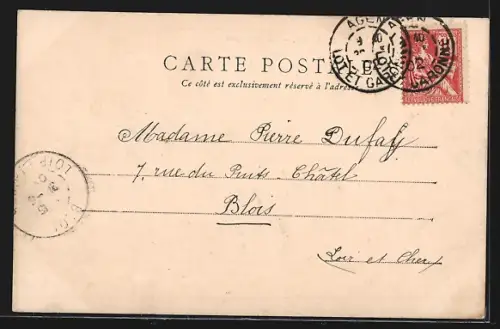 AGEN
LOT ET GARONNE
AGEN
LOT ET GARONNE
CARTE POSTALE
Ce côté est exclusivement réservé à l'adresse
Madame Pierre Dufay
7, rue du Puits-Châtel
Blois
Loir et Cher